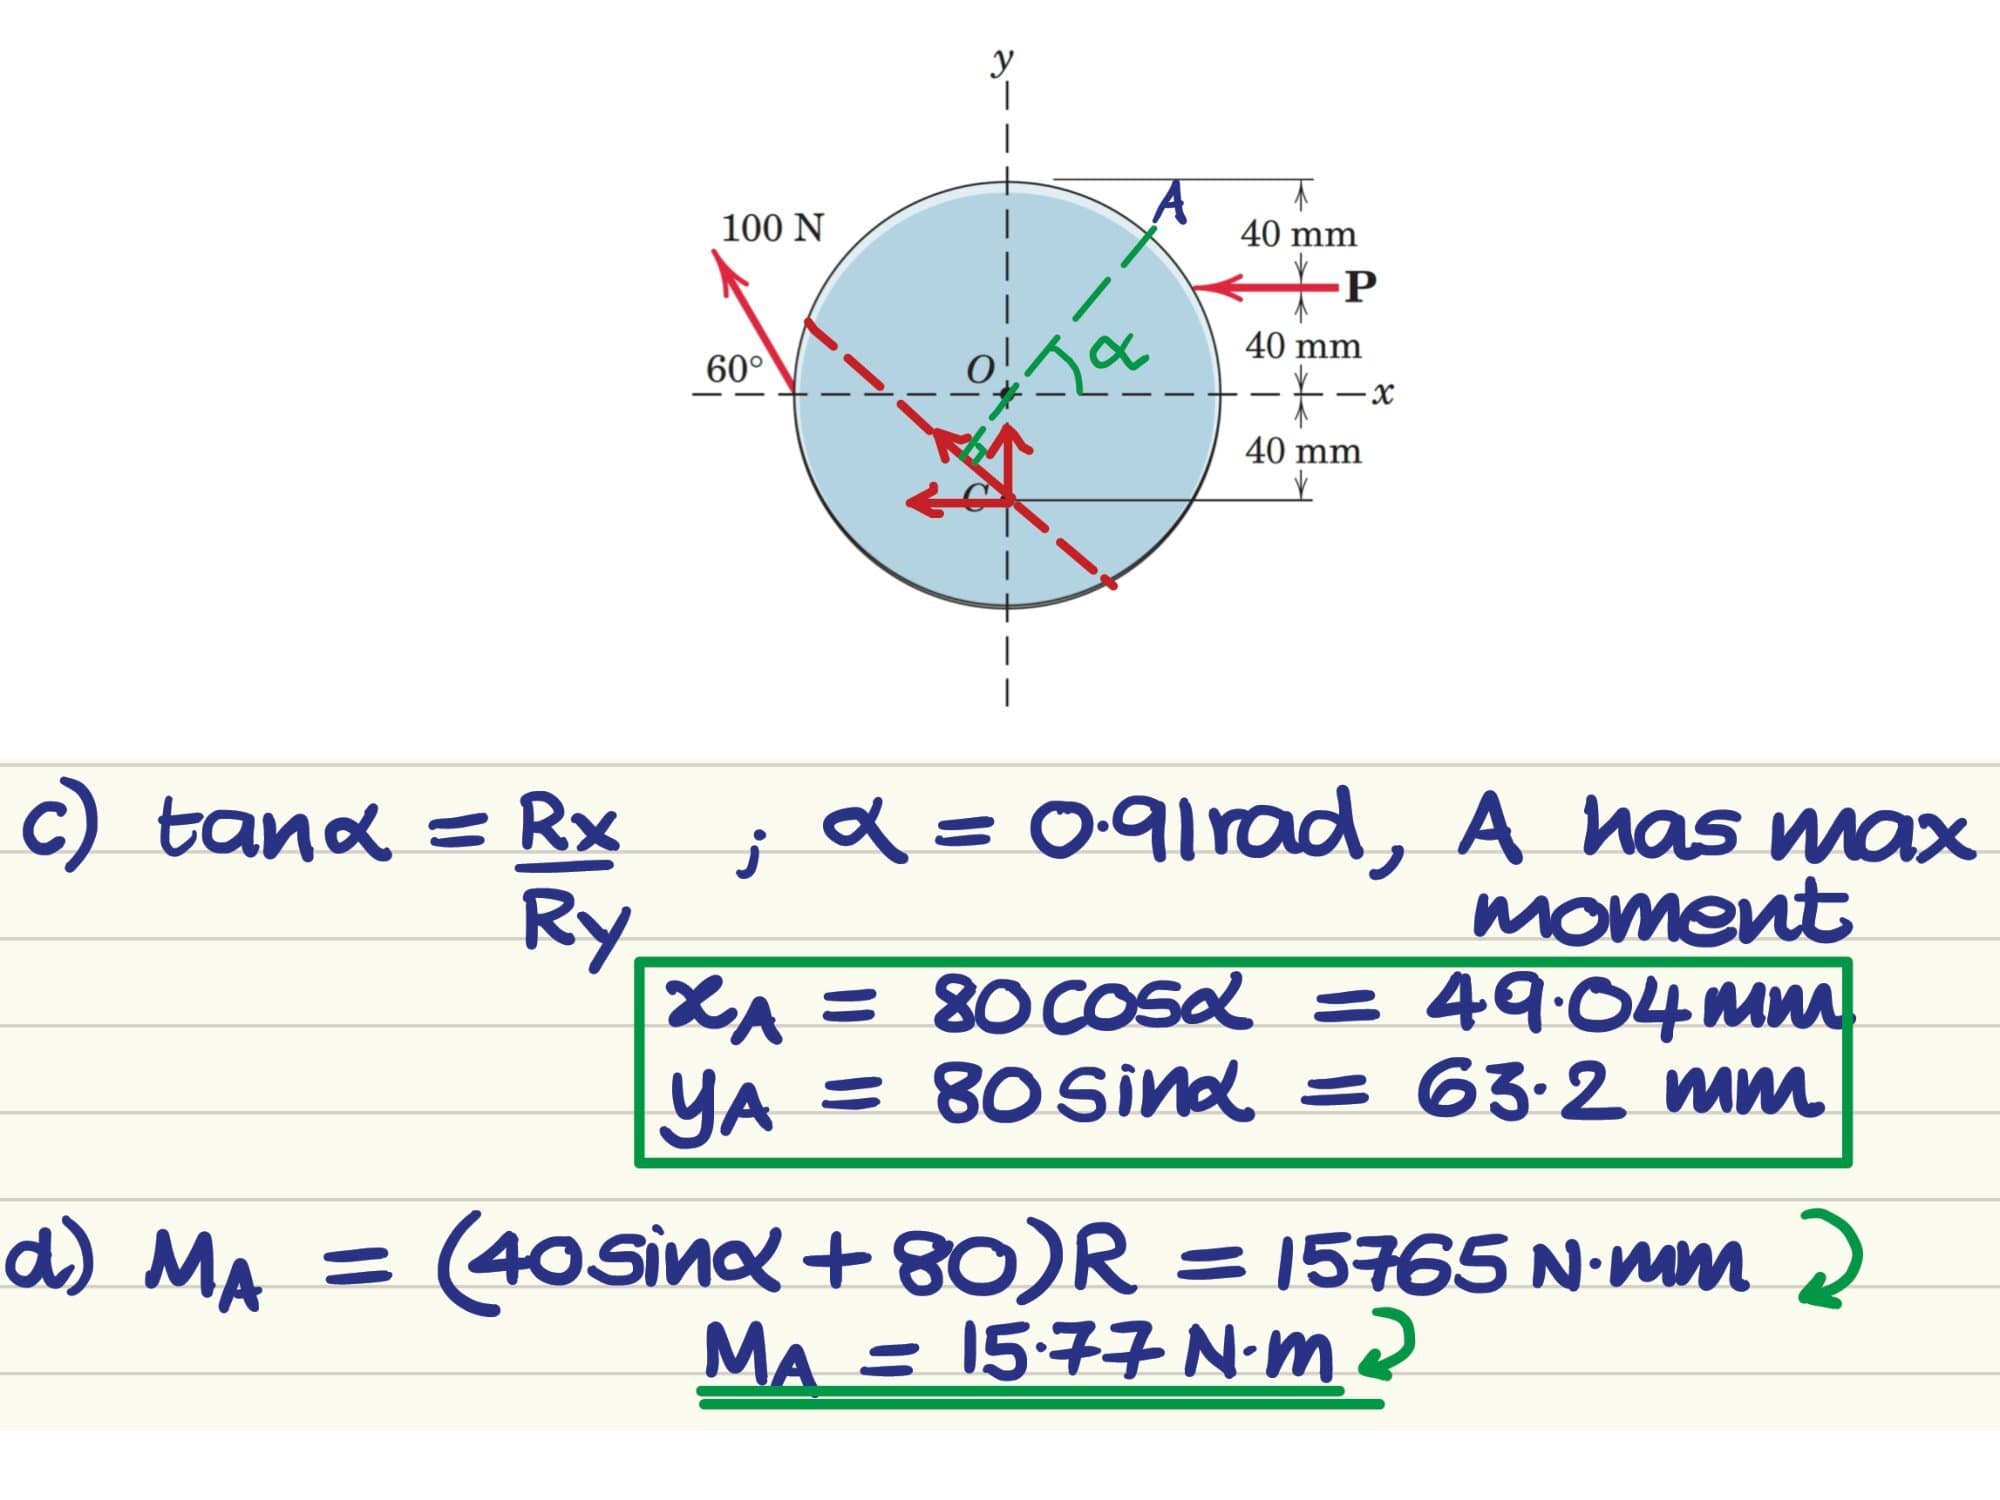 y
A
100 N
40 mm
P
60°
O
α
40 mm
x
40 mm
C
c) tanα = Rx / Ry ; α = 0.91rad, A has max
moment
xA = 80cosα = 49.04mm
yA = 80sinα = 63.2 mm
d) MA = (40sinα + 80)R = 15765 N·mm
MA = 15.77 N·m